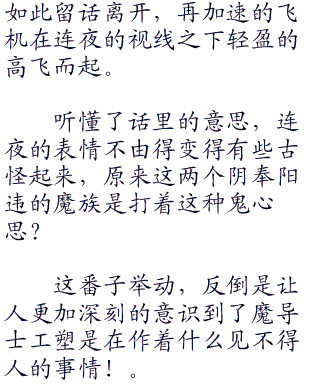 如此留话离开，再加速的飞
机在连夜的视线之下轻盈的
高飞而起。
听懂了话里的意思，连
夜的表情不由得变得有些古
怪起来，原来这两个阴奉阳
违的魔族是打着这种鬼心
思？
这番子举动，反倒是让
人更加深刻的意识到了魔导
士工塑是在作着什么见不得
人的事情！。